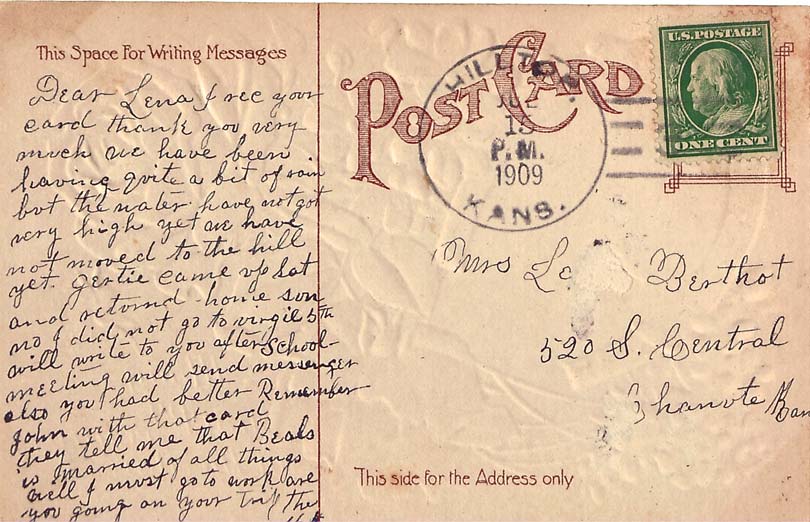 This Space For Writing Messages
Dear Lena I rec your
card thank you very
much we have been
having quite a bit of rain
but the water have not got
very high yet we have
not moved to the hill
yet. Gertie came up Sat
and returnd home sun
no I did not go to virgil 5th
will write to you after School
meeting will send messenger
also you had better Remember
John with that card
they tell me that Beals
is married of all things
well I must go to work are
you going on your trip the
POST CARD
HILLTOP.
13
P.M.
1909
KANS.
U.S. POSTAGE
ONE CENT
Mrs Berthot
520 S. Central
Chanute Kan
This side for the Address only